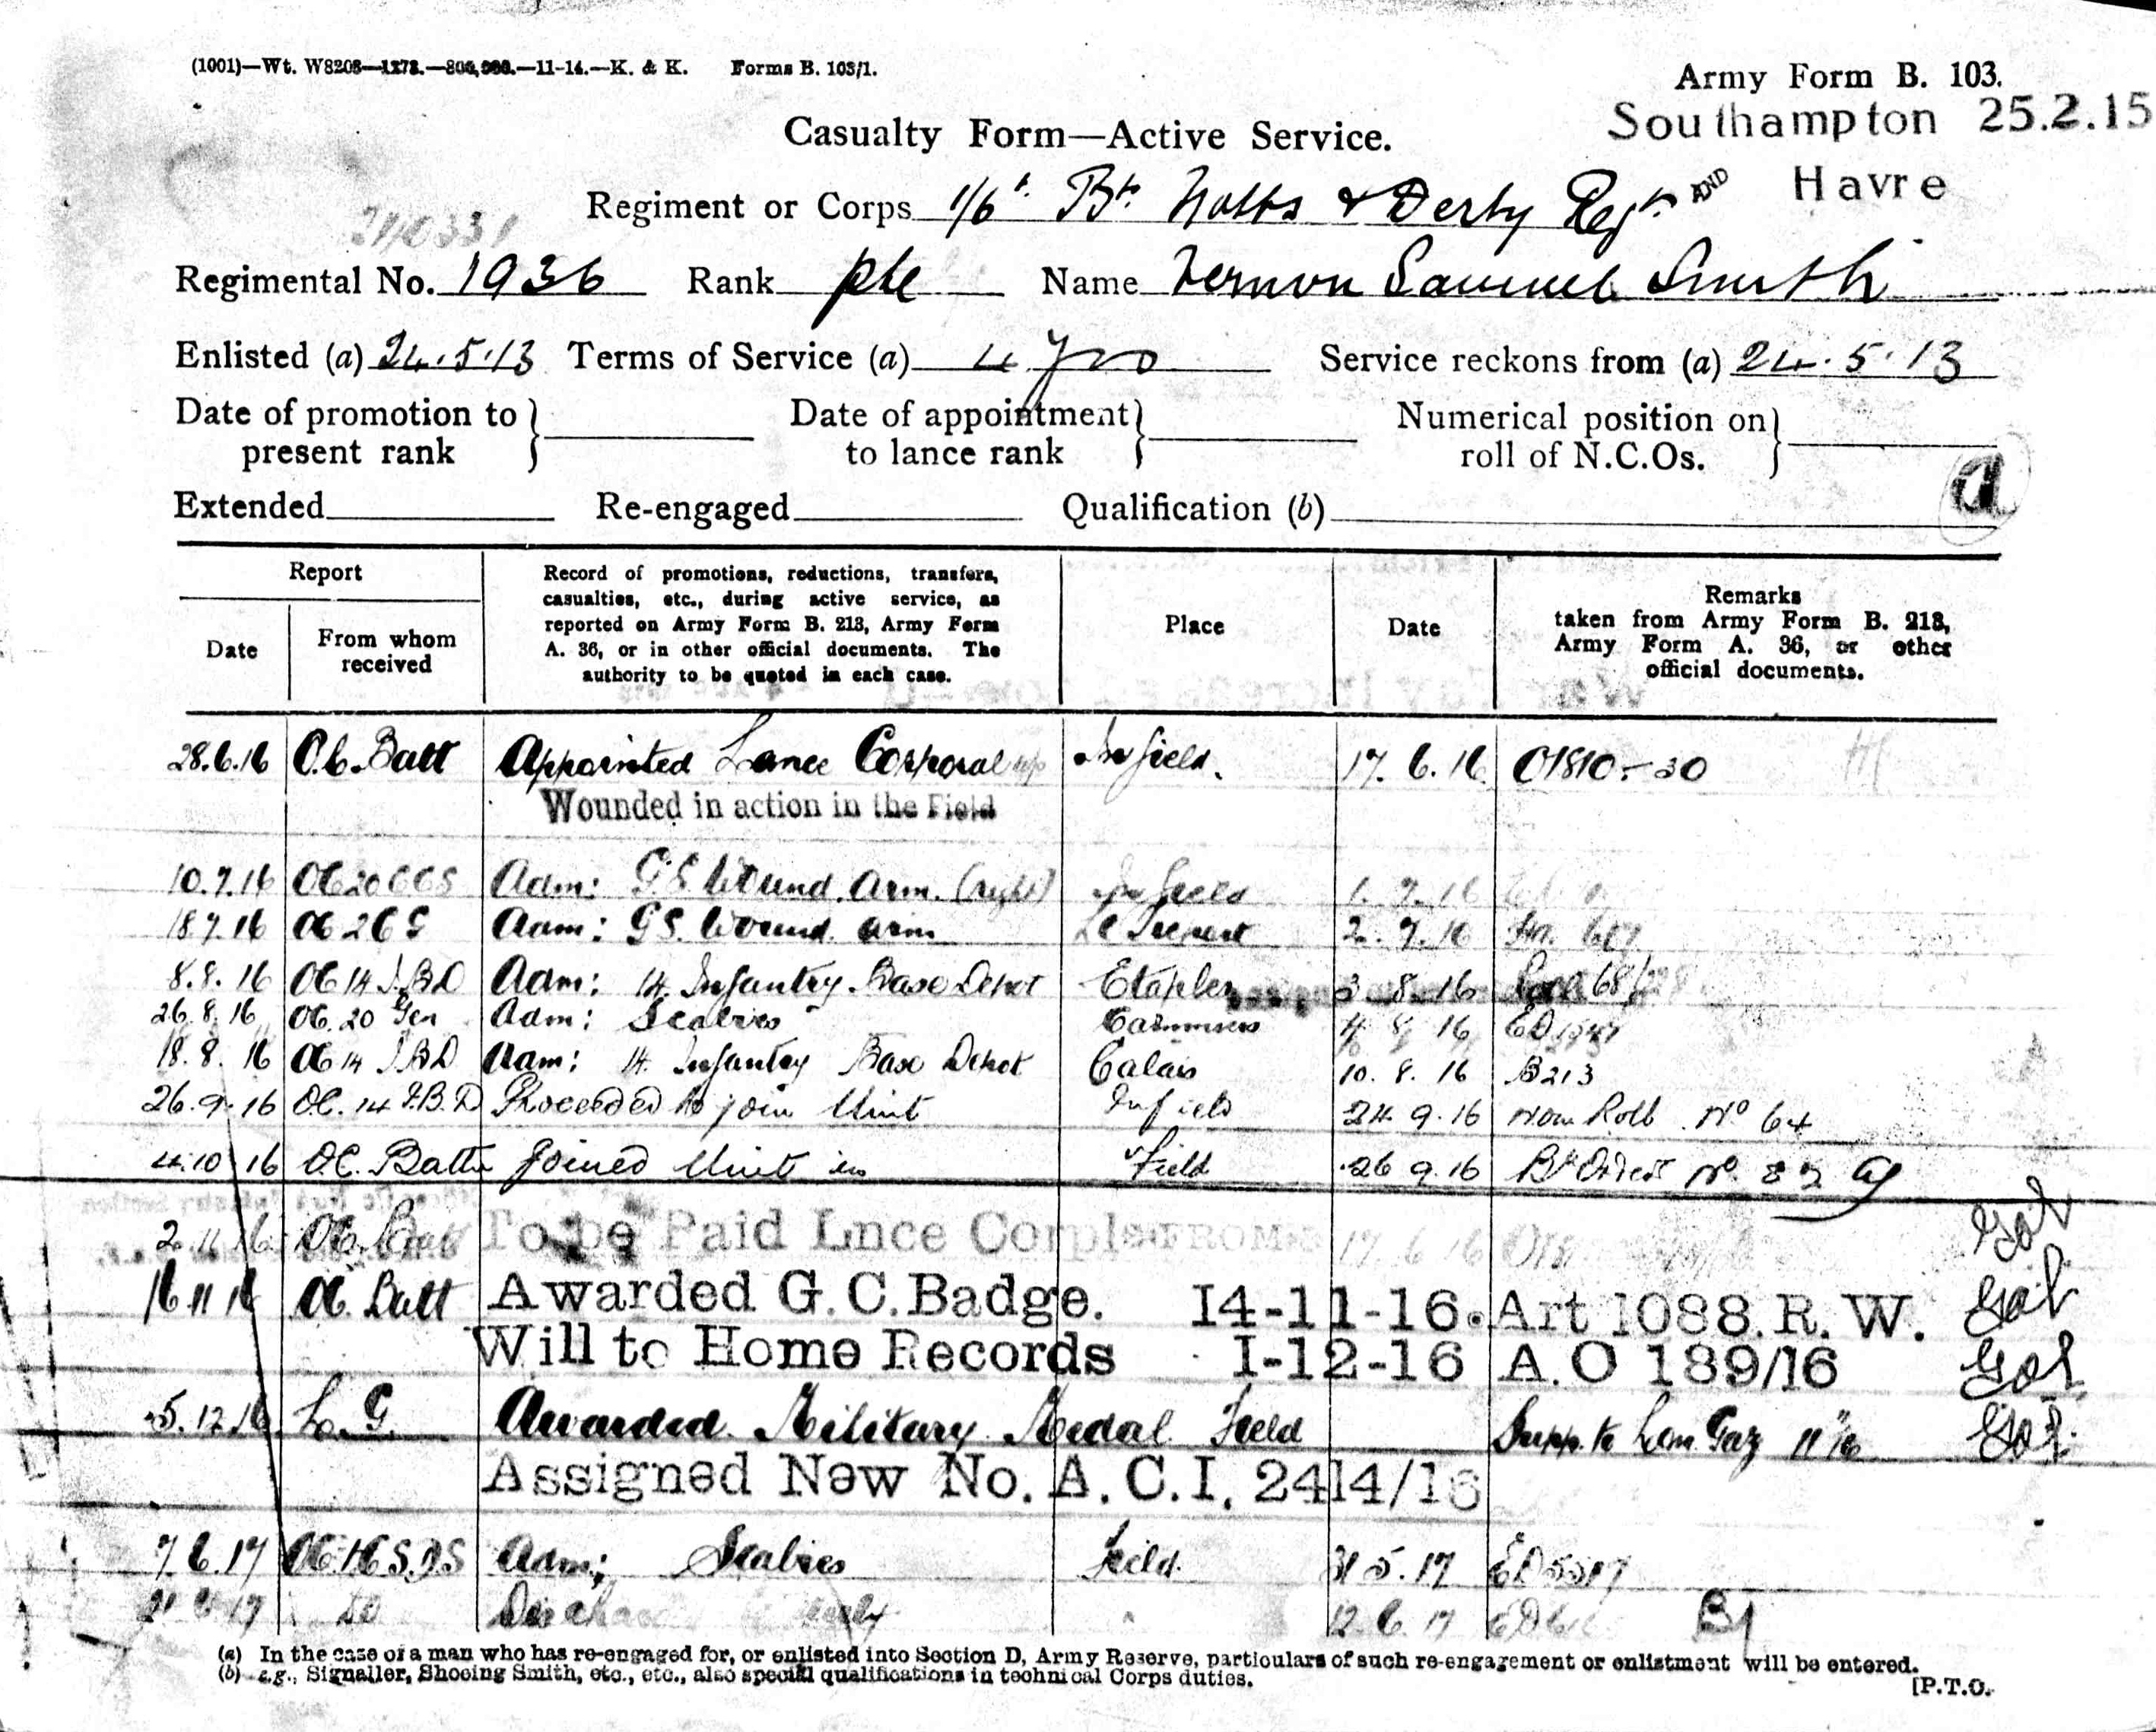 (1001)—Wt. W8208—1178.—800,000.—11-14.—K. & K. Forms B. 103/1.
Army Form B. 103.
Southampton 25.2.15
Casualty Form—Active Service.
Regiment or Corps 1/6t. Bn Notts & Derby Regt. AND Havre
Regimental No. 1936 Rank Pte Name Vernon Samuel Smith
Enlisted (a) 24.5.13 Terms of Service (a) 4 yrs Service reckons from (a) 24.5.13
Date of promotion to present rank
Date of appointment to lance rank
Numerical position on roll of N.C.Os.
a
Extended Re-engaged Qualification (b)
Report
Date
From whom received
Record of promotions, reductions, transfers,
casualties, etc., during active service, as
reported on Army Form B. 213, Army Form
A. 36, or in other official documents. The
authority to be quoted in each case.
Place
Date
Remarks
taken from Army Form B. 213,
Army Form A. 36, or other
official documents.
28.6.16 O.C. Batt Appointed Lance Corporal In field. 17.6.16 O1810-30
Wounded in action in the Field
10.7.16 OC 20 CCS Adm: G.S. Wound. Arm. (right) In field 1.7.16
18.7.16 OC 2 G Adm: GS. Wound arm Le Treport 2.7.16
8.8.16 OC 14 I.BD Adm: 14 Infantry Base Depot Etaples 3.8.16
26.8.16 OC. 20 Gen Adm: Scabies Camiers 4 8 16
18.8.16 OC 14 I.BD Adm: 14. Infantry Base Depot Calais 10.8.16 B213
26.9.16 OC. 14 I.B.D Proceeded to join Unit In field 24.9.16 Nom Roll No 64
4.10.16 O.C. Battn Joined Unit in Field 26 9.16 Bn Orders No.
2.11.16 OC. Batt To be Paid Lnce Corpl FROM 17 6 16
16 11 16 OC. Batt Awarded G.C.Badge. 14-11-16. Art 1088.R.W.
Will to Home Records 1-12-16 A.O 189/16
5.12.16 L.G. Awarded Military Medal Field Supp. to Lon. Gaz
Assigned New No. A.C.I. 2414/16
7.6.17 Adm; Scabies Field. 31 5.17
DO 12.6.17
(a) In the case of a man who has re-engaged for, or enlisted into Section D, Army Reserve, particulars of such re-engagement or enlistment will be entered.
(b) e.g., Signaller, Shoeing Smith, etc., etc., also special qualifications in technical Corps duties.
[P.T.O.